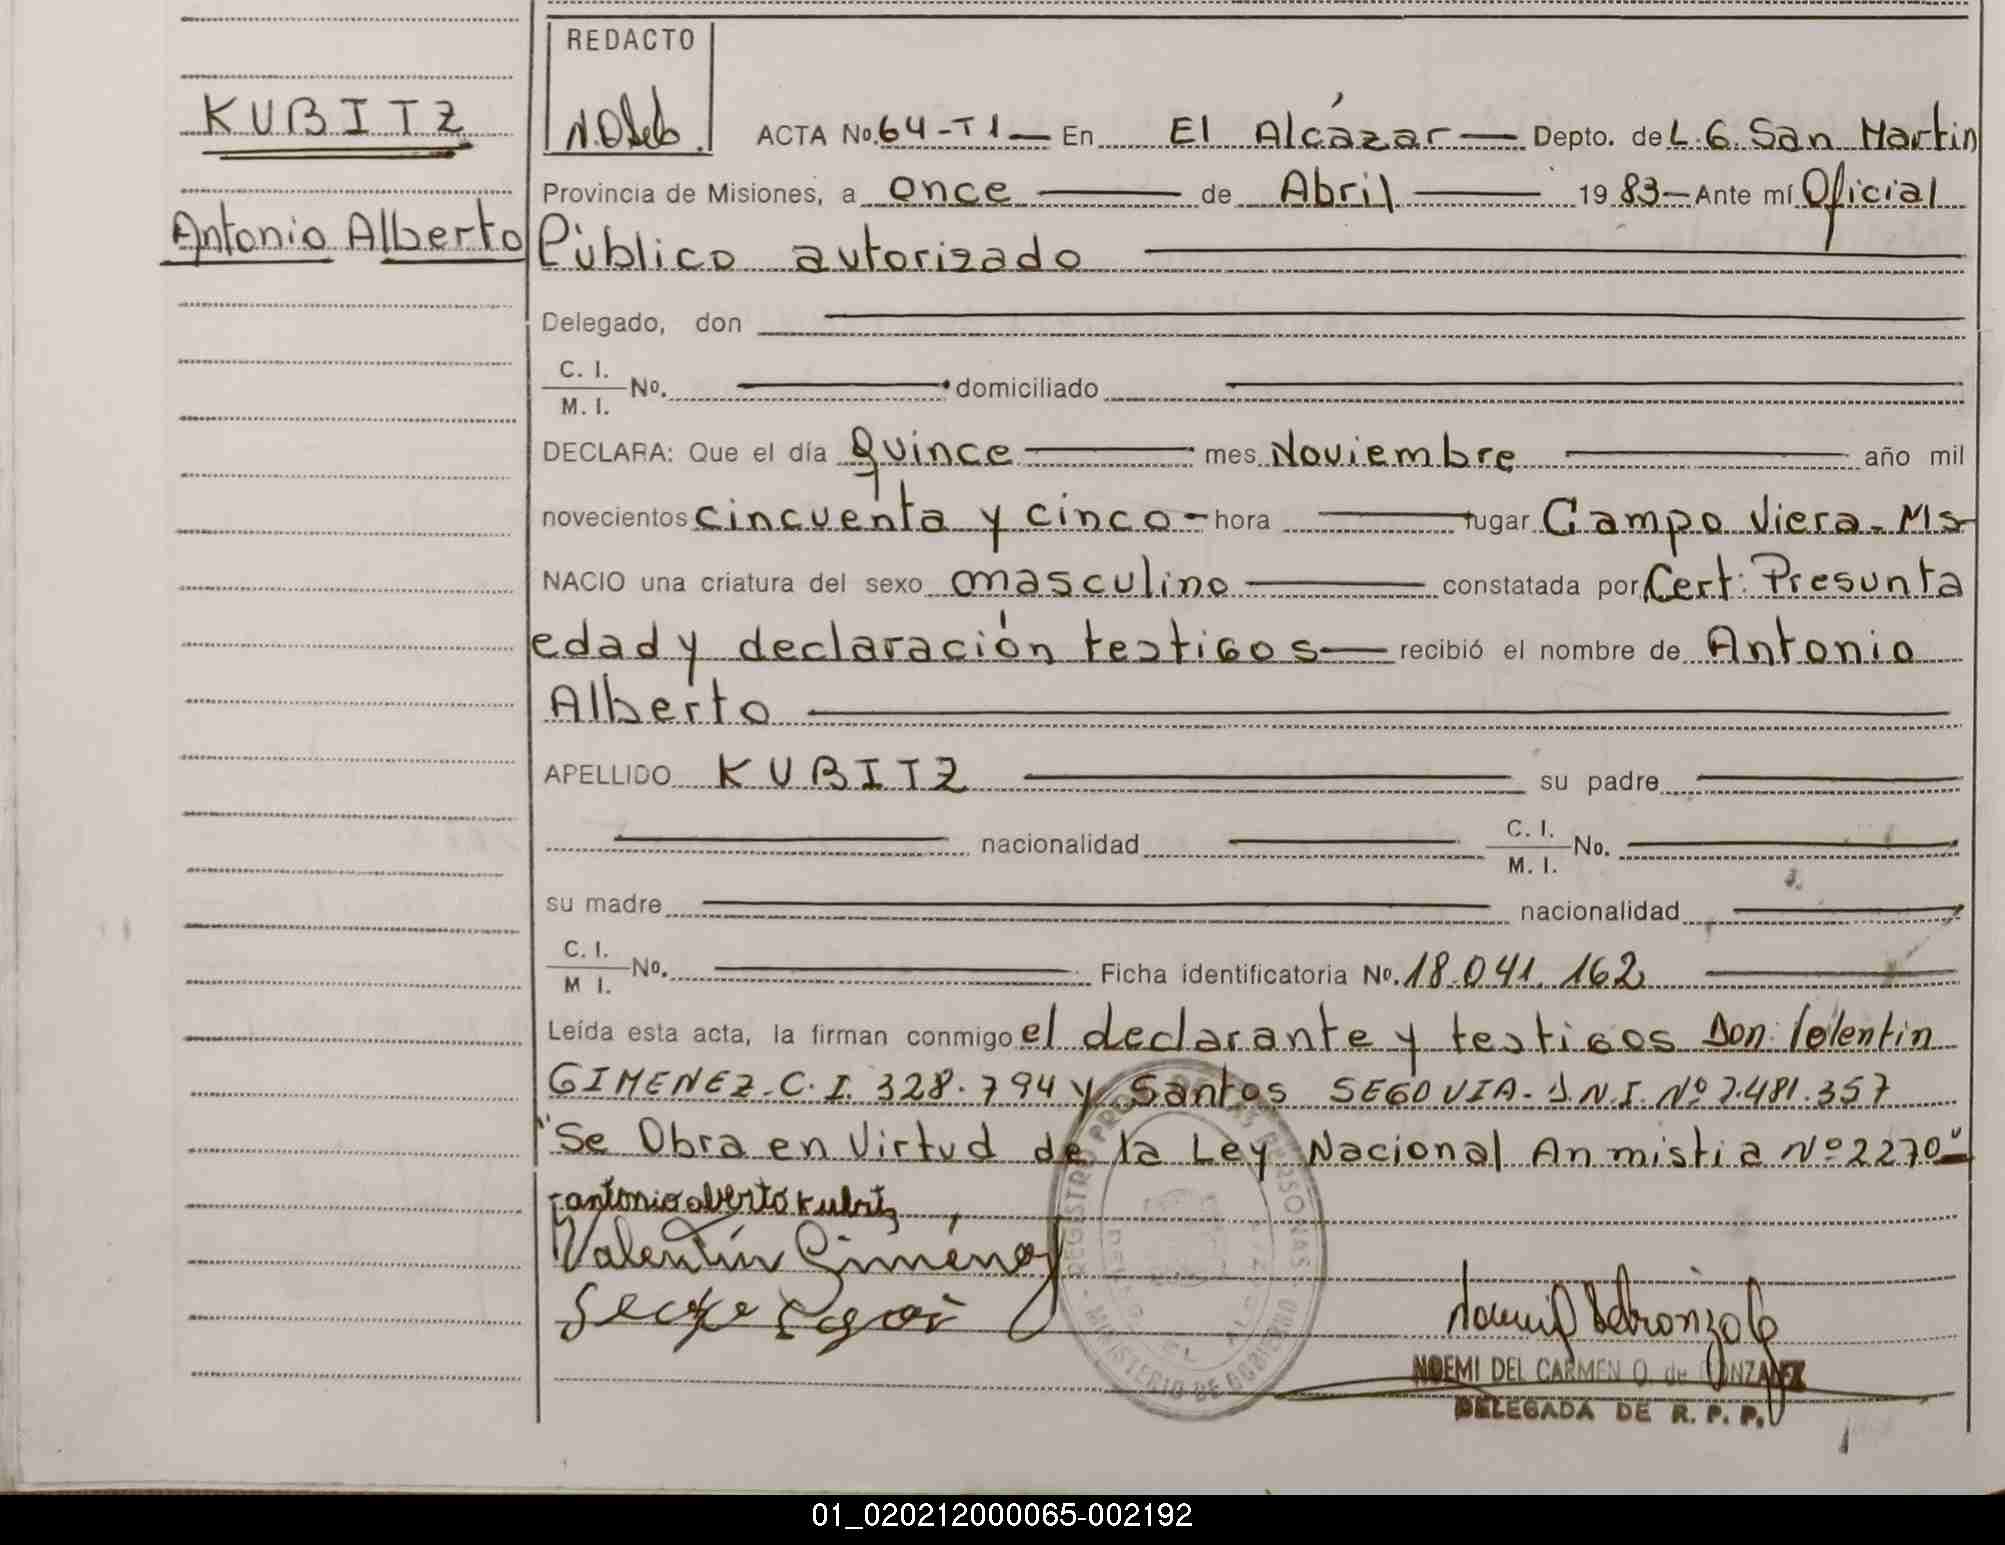 REDACTO
KUBITZ
ACTA No. 64-T1 En El Alcázar Depto. de L.G. San Martin
Provincia de Misiones, a once de Abril 1983 Ante mí Oficial
Antonio Alberto
Público autorizado
Delegado, don
C. I.
M. I. No. domiciliado
DECLARA: Que el día quince mes Noviembre año mil
novecientos cincuenta y cinco - hora lugar Campo Viera - Ms
NACIO una criatura del sexo masculino constatada por Cert: Presunta
edad y declaración testigos recibió el nombre de Antonio
Alberto
APELLIDO KUBITZ su padre
nacionalidad C. I.
M. I. No.
su madre nacionalidad
C. I.
M I. No. Ficha identificatoria No. 18.041.162
Leída esta acta, la firman conmigo el declarante y testigos Don:
GIMENEZ - C.I. 328.794 y Santos SEGOVIA - D.N.I. Nº 7.481.357
"Se Obra en Virtud de la Ley Nacional Anmistia Nº 2270"
antonio alberto Kubitz
Valentín Giménez
NOEMI DEL CARMEN O. de GONZALEZ
DELEGADA DE R. P. P.
REGISTRO PROVINCIAL DE LAS PERSONAS
MINISTERIO DE GOBIERNO
01_020212000065-002192